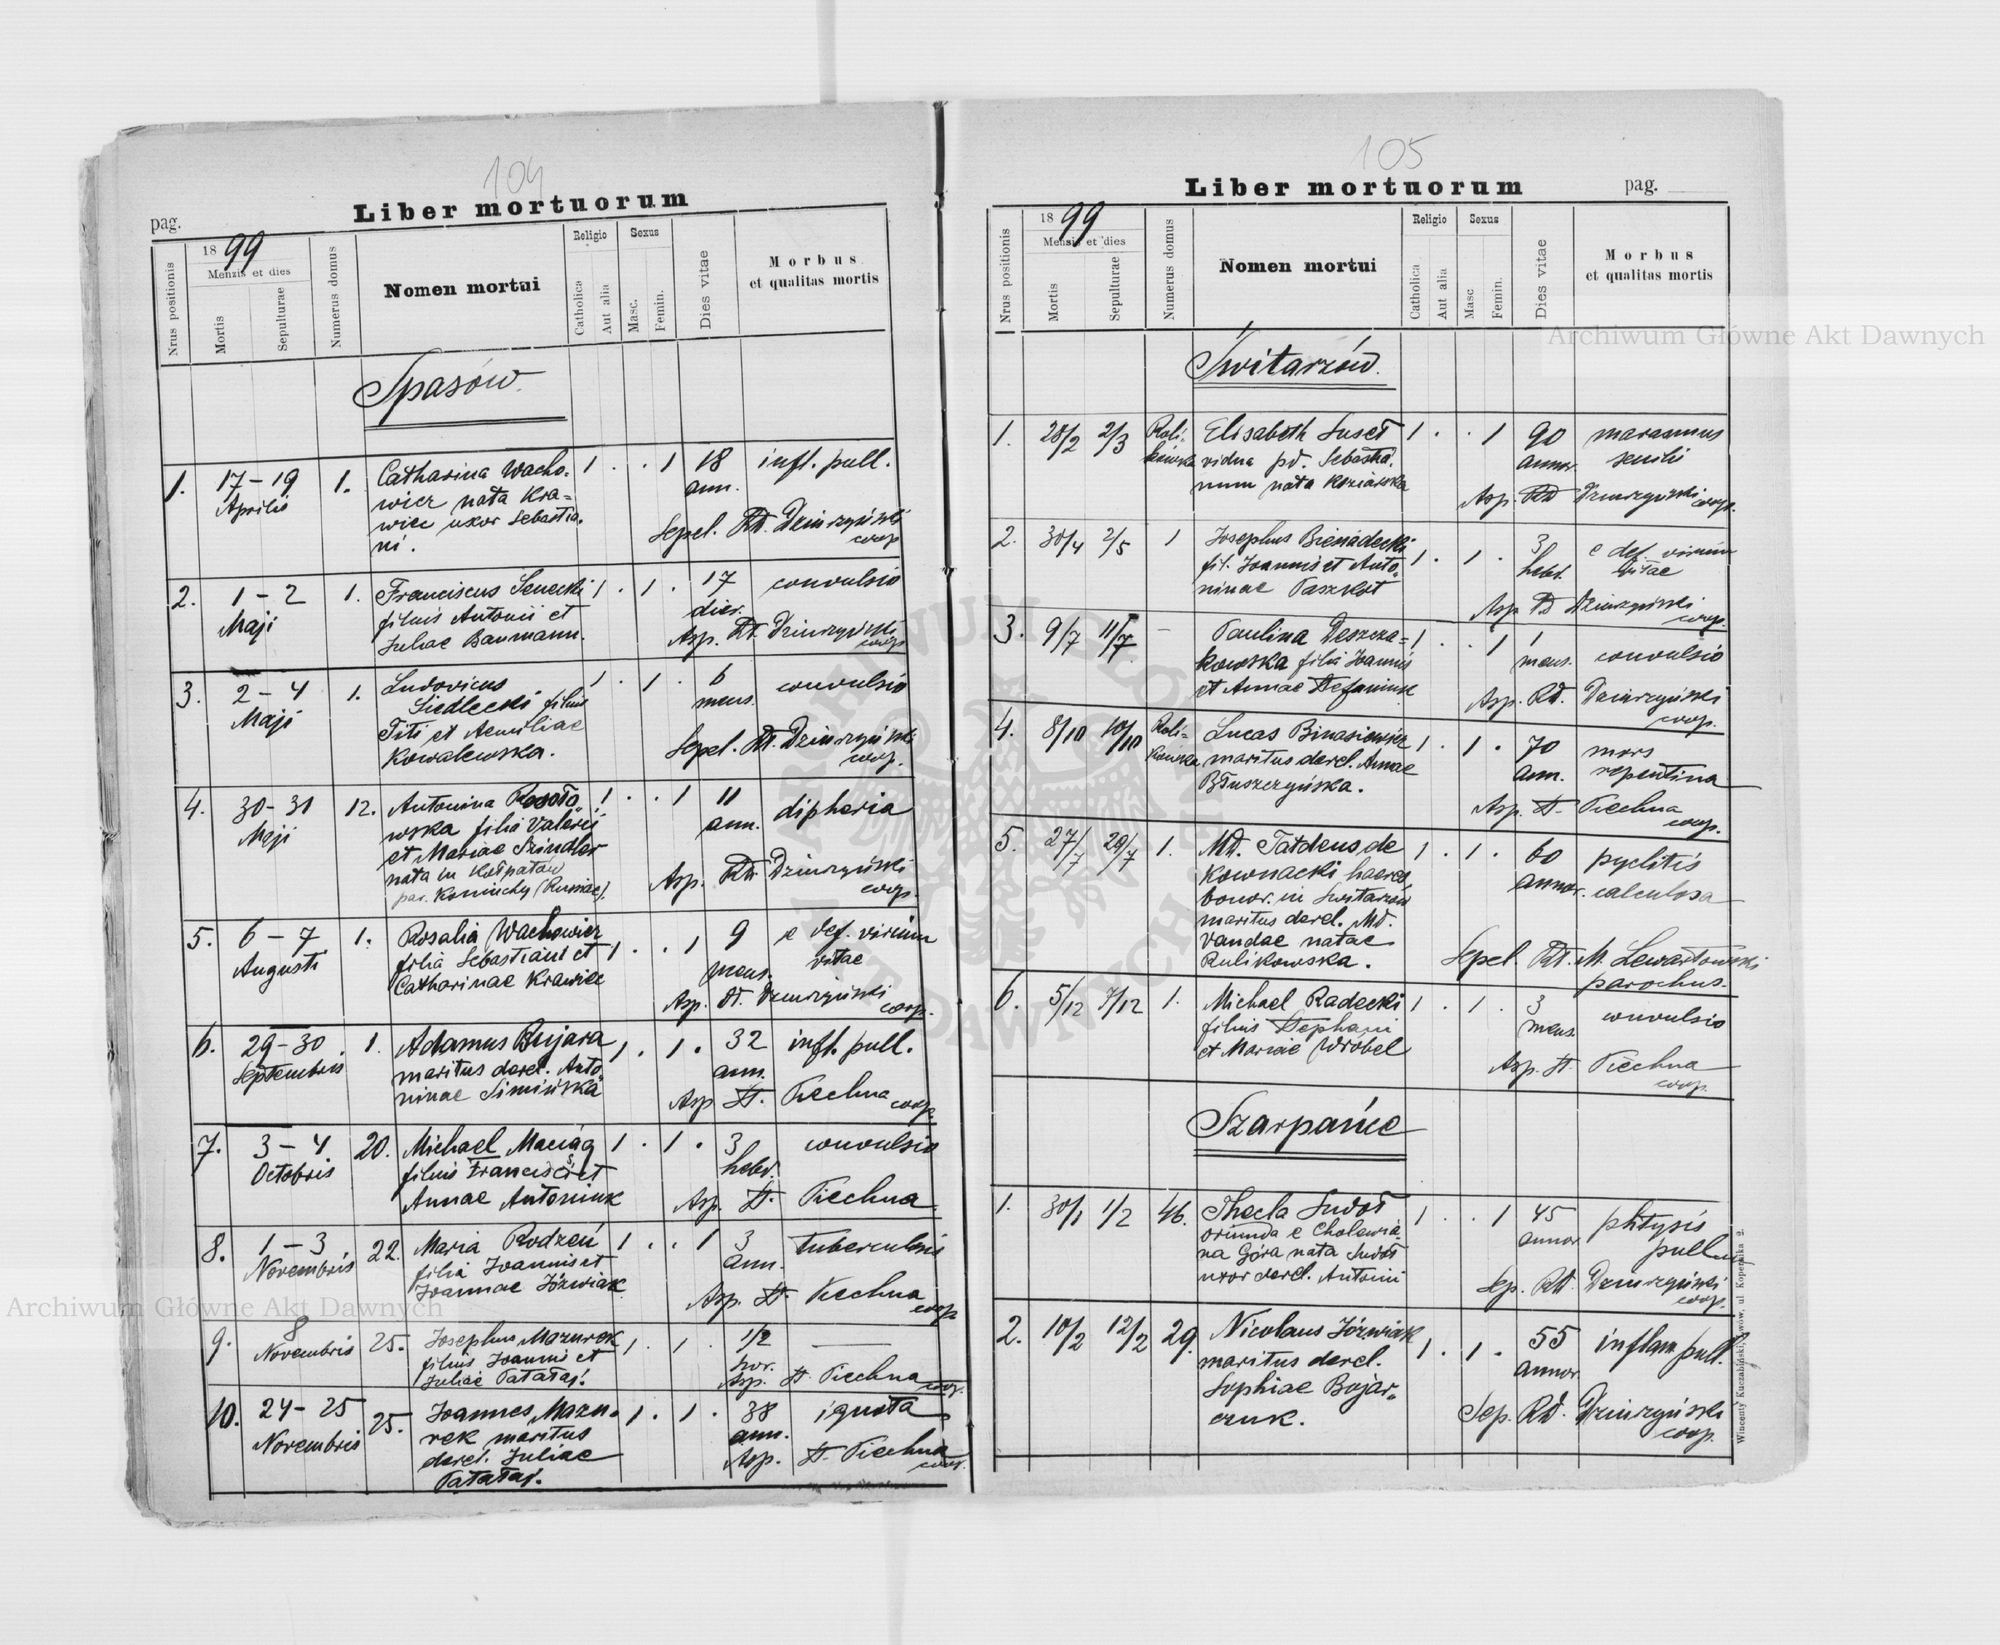 104
pag.
Liber mortuorum
Nrus positionis
1899
Mensis et dies
Mortis
Sepulturae
Numerus domus
Nomen mortui
Religio
Catholica
Aut alia
Sexus
Masc.
Femin.
Dies vitae
Morbus
et qualitas mortis
Spasów.
1. 17 – 19 1. Catharina Wacho- 1 . . 1 18 infl. pull.
Aprilis wicz nata Kra= ann.
wiec uxor Sebastia-
ni. Sepel. Rd. Dziurzyński
coop.
2. 1 – 2 1. Franciscus Senecki 1 . 1 . 17 convulsio
Maji filius Antonii et dier.
Juliae Baumann. Asp. Rd. Dziurzyński
coop.
3. 2 – 4 1. Ludovicus 1 . 1 . 6 convulsio
Maji Siedlecki filius mens.
Titi et Aemiliae Sepel. Rd. Dziurzyński
Kowalewska. coop.
4. 30 – 31 12. Antonina 1 . . 1 11 dipheria
Maji wska filia Valerii ann.
et Mariae Szindler
nata in Kołpatów Asp. Rd. Dziurzyński
par. (Russiae). coop.
5. 6 – 7 1. Rosalia Wachowicz 1 . . 1 9 e def. virium
Augusti filia Sebastiani et mens. vitae
Catharinae Krawiec Asp. Rd. Dziurzyński
coop.
6. 29 – 30. 1. Adamus Bujara 1 . 1 . 32 infl. pull.
Septembris maritus derel. Anto- ann.
ninae Simińska Asp. R. Piechna coop.
7. 3 – 4. 20. Michael Maciąg 1 . 1 . 3 convulsio
Octobris filius Francisci et hebd.
Annae Antoniuk Asp. R. Piechna
8. 1 – 3 22. Maria Rodzeń 1 . . 1 3 tuberculosis
Novembris filia Joannis et ann.
Joannae Józwiak Asp. R. Piechna
coop.
9. 8 25. Josephus Mazurek 1 . 1 . 1/2 —
Novembris filius Joannis et hor.
Juliae Patałaj. Asp. R. Piechna coop.
10. 24 – 25 25. Joannes Mazu- 1 . 1 . 38 ignota
Novembris rek maritus ann.
derel. Juliae Asp. R. Piechna
Patałaj. coop.
105
Liber mortuorum
pag.
Nrus positionis
1899
Mensis et dies
Mortis
Sepulturae
Numerus domus
Nomen mortui
Religio
Catholica
Aut alia
Sexus
Masc
Femin.
Dies vitae
Morbus
et qualitas mortis
Świtarzów.
1. 28/2 2/3 Ruli- Elisabeth Suseł 1 . . 1 90 marasmus
kówka vidua pd. Sebastia- annor. senilis
num nata Koziarska
Asp. Rd Dziurzyński coop.
2. 30/4 2/5 1 Josephus Bienadecki 1 . 1 . 3 e def. virium
fil. Joannis et Anto- hebd. vitae
ninae Paszkot
Asp Rd Dziurzyński coop.
3. 9/7 11/7 – Paulina Deszcza= 1 . . 1 1 convulsio
kowska filia Joannis mens.
et Annae Stefaniuk Asp. Rd. Dziurzyński
coop.
4. 8/10 10/10 Ruli- Lucas Binasiewicz 1 . 1 . 70 mors
kówka maritus derel. Annae ann. repentina
Błuszczyńska. Asp. R. Piechna
coop.
5. 27/7 29/7 1. Md. Tatdeus de 1 . 1 . 60 pyelitis
Kownacki haeres annor. calculosa
bonor. in Switarzów
maritus derel. Md.
Vandae natae Sepel. Rd. M. Lewartowski
Rulikowska. parochus.
6. 5/12 7/12 1. Michael Radecki 1 . 1 . 3 convulsio
filius Stephani mens.
et Mariae Wrobel Asp. R. Piechna
coop.
Szarpańce
1. 30/1 1/2 46. Thecla Sudoł 1 . . 1 45 phtysis
oriunda e Cholewia- annor. pull
na Góra nata Sudoł
uxor derel. Antoni Sep. Rd. Dziurzyński
coop.
2. 10/2 12/2 29. Nicolaus Józwiak 1 . 1 . 55 inflam pull.
maritus derel. annor.
Sophiae Bojar- Sep. Rd. Dziurzyński
czuk. coop.
Wincenty Kuczabiński, Lwów, ul Kopernika 2.
Archiwum Główne Akt Dawnych
Archiwum Główne Akt Dawnych
ARCHIWUM GŁÓWNE AKT DAWNYCH